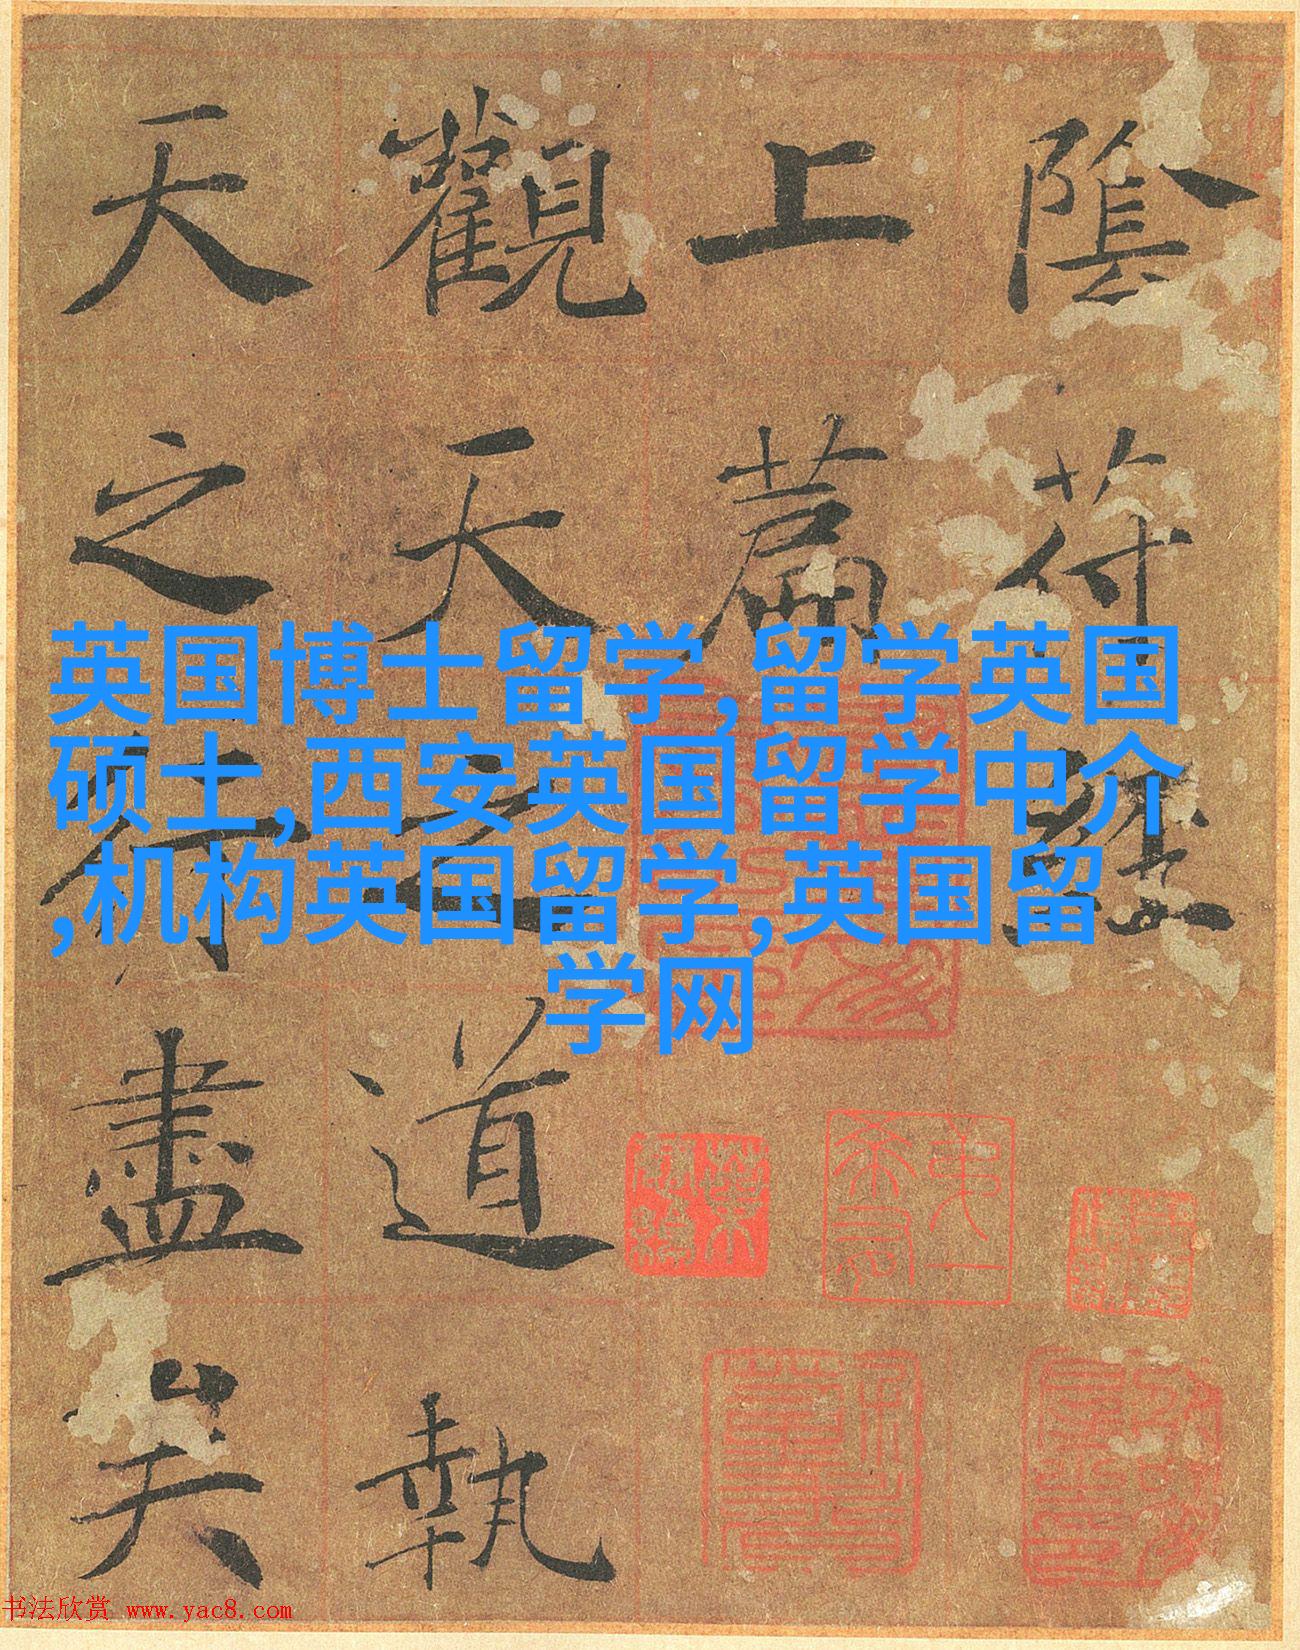 陰符經
上篇
觀天之道執
天之行盡矣
英国博士留学,留学英国
硕士,西安英国留学中介
,机构英国留学,英国留
学网
书法欣赏 www.yac8.com